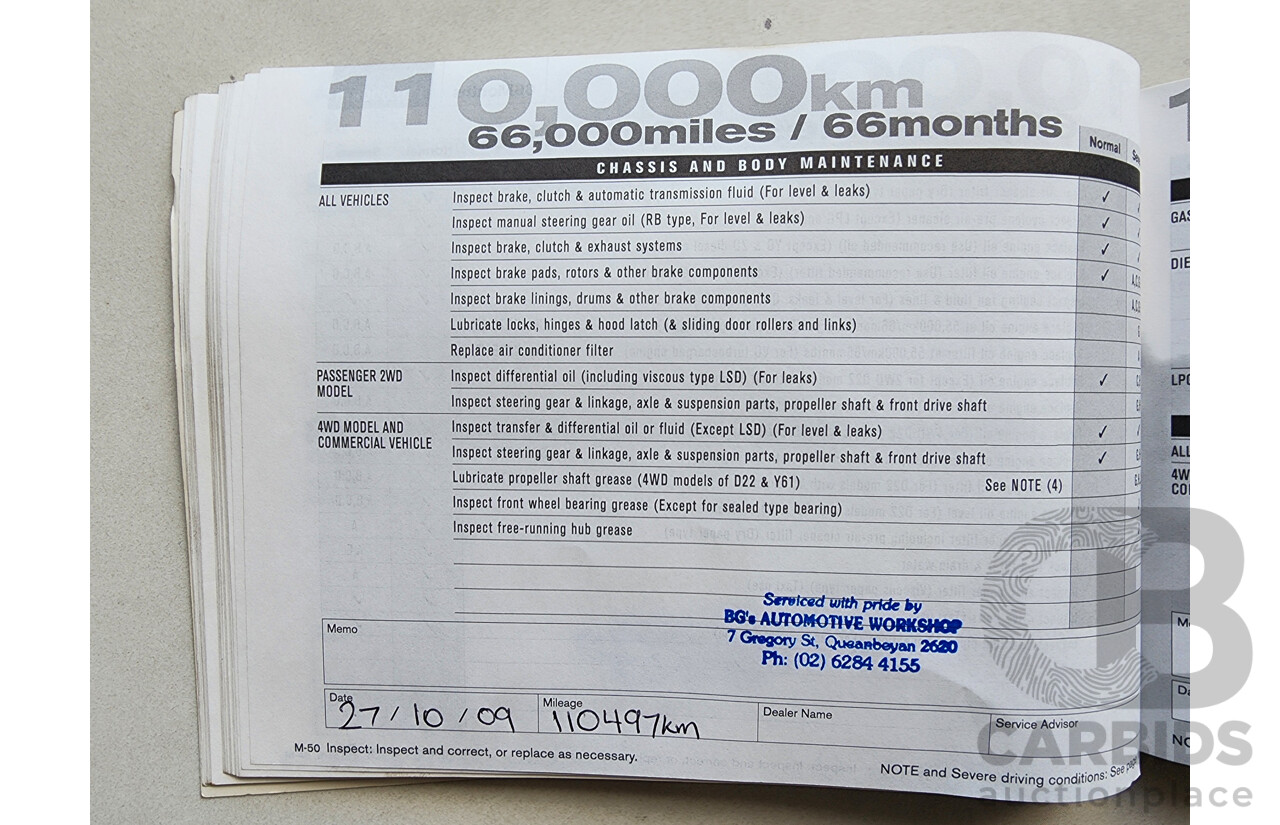 110,000km
66,000miles / 66months
Normal
CHASSIS AND BODY MAINTENANCE
ALL VEHICLES
Inspect brake, clutch & automatic transmission fluid (For level & leaks) ✓
Inspect manual steering gear oil (RB type, For level & leaks) ✓
Inspect brake, clutch & exhaust systems ✓
Inspect brake pads, rotors & other brake components ✓
Inspect brake linings, drums & other brake components
Lubricate locks, hinges & hood latch (& sliding door rollers and links)
Replace air conditioner filter
PASSENGER 2WD
MODEL
Inspect differential oil (including viscous type LSD) (For leaks) ✓
Inspect steering gear & linkage, axle & suspension parts, propeller shaft & front drive shaft
4WD MODEL AND
COMMERCIAL VEHICLE
Inspect transfer & differential oil or fluid (Except LSD) (For level & leaks) ✓
Inspect steering gear & linkage, axle & suspension parts, propeller shaft & front drive shaft ✓
Lubricate propeller shaft grease (4WD models of D22 & Y61) See NOTE (4)
Inspect front wheel bearing grease (Except for sealed type bearing)
Inspect free-running hub grease
Serviced with pride by
BG's AUTOMOTIVE WORKSHOP
7 Gregory St, Queanbeyan 2620
Ph: (02) 6284 4155
Memo
Date
27/10/09
Mileage
110497km
Dealer Name
Service Advisor
M-50 Inspect: Inspect and correct, or replace as necessary.
NOTE and Severe driving conditions: See
CARBIDS
auctionplace